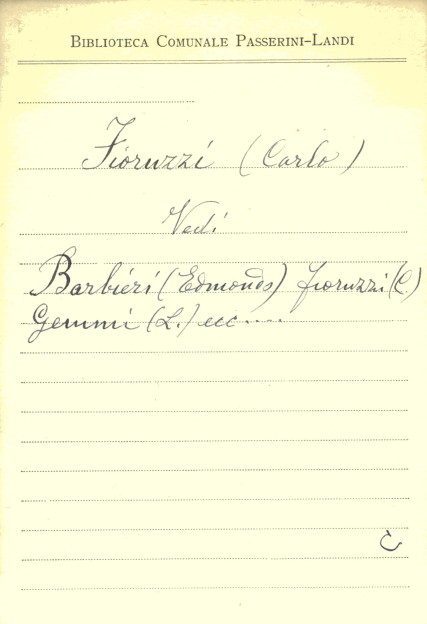 BIBLIOTECA COMUNALE PASSERINI-LANDI
Fioruzzi (Carlo)
Vedi
Barbieri (Edmondo) Fioruzzi (C.)
Gemmi (L.) ecc....
C